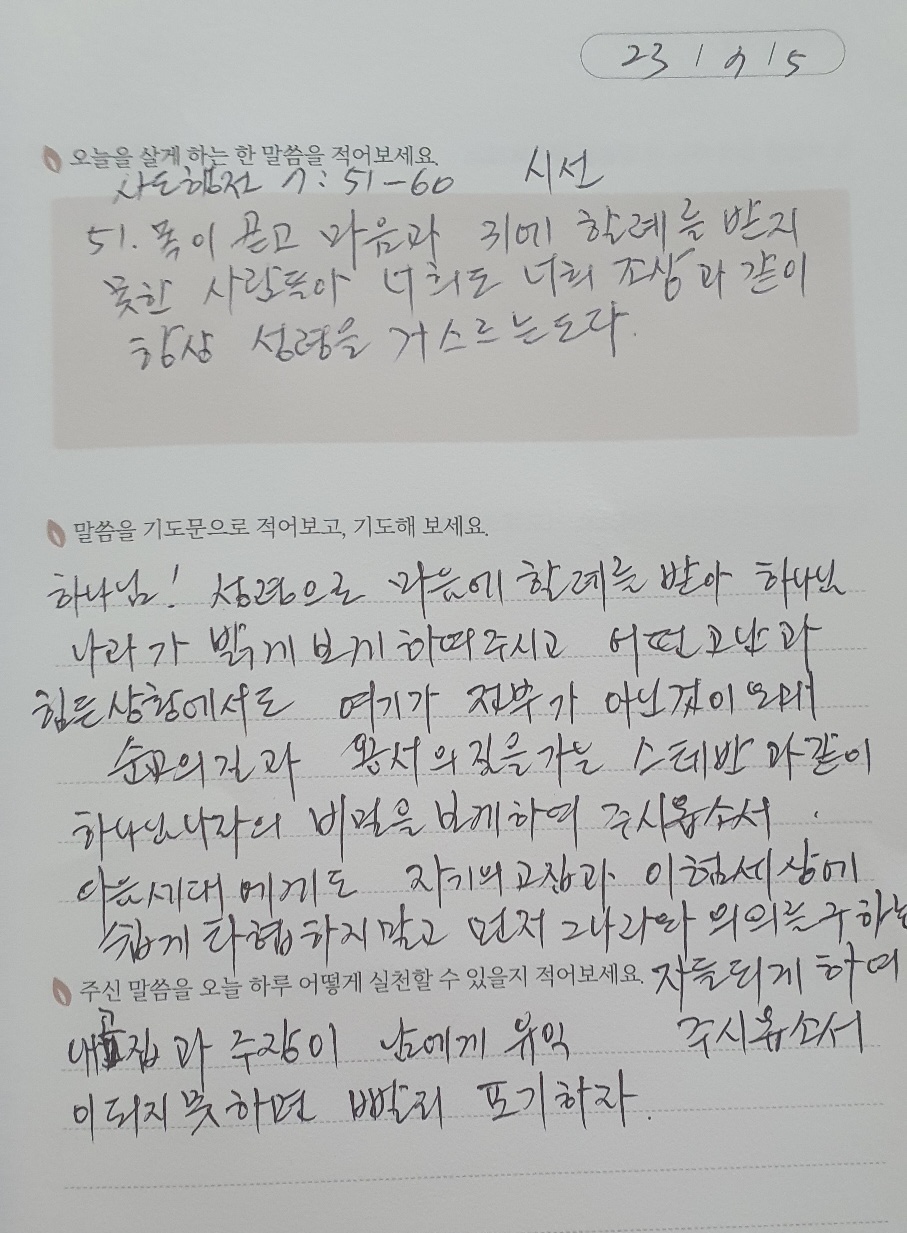 23 / 9 / 5
오늘을 살게 하는 한 말씀을 적어보세요.
사도행전 7:51-60 시선
51. 목이 곧고 마음과 귀에 할례를 받지
못한 사람들아 너희도 너희 조상과 같이
항상 성령을 거스르는도다.
말씀을 기도문으로 적어보고, 기도해 보세요.
하나님! 성령으로 마음에 할례를 받아 하나님
나라가 밝게 보게하여주시고 어떤고난과
힘든상황에서도 여기가 전부가 아닌것이오매
순교의길과 용서의길을가는 스테반과같이
하나님나라의 비밀을 보게하여 주시옵소서.
다음세대에게도 자기의고집과 이험세상에
쉽게타협하지말고 먼저 그나라와 의의를구하는
자들되게하여
주시옵소서
주신 말씀을 오늘 하루 어떻게 실천할 수 있을지 적어보세요.
내고집과 주장이 남에게 유익
이되지못하면 빨리 포기하자.